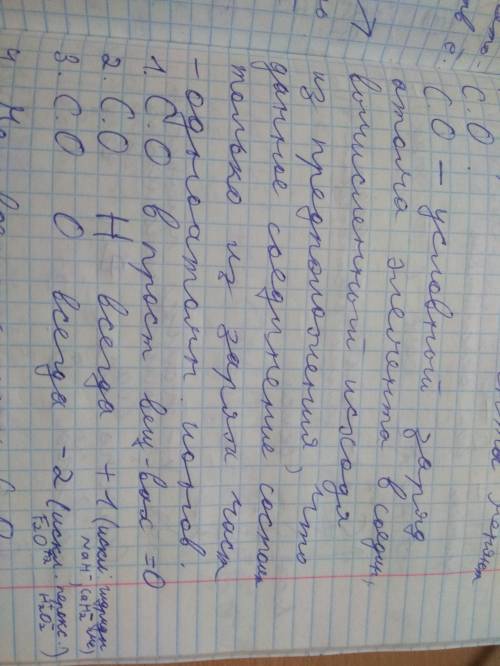 С.О.
С.О – условный заряд
атома элемента в соедин,
вычисленный исходя
из предположения, что
данное соединение состоит
только из заряж част
– одноатомн. ионов.
1. С.О в прост вещ-вах = 0
2. С.О Н всегда +1 (искл: гидриды
NaH, CaH₂
3. С.О О всегда -2 (искл. перокс
F₂O, H₂O₂)